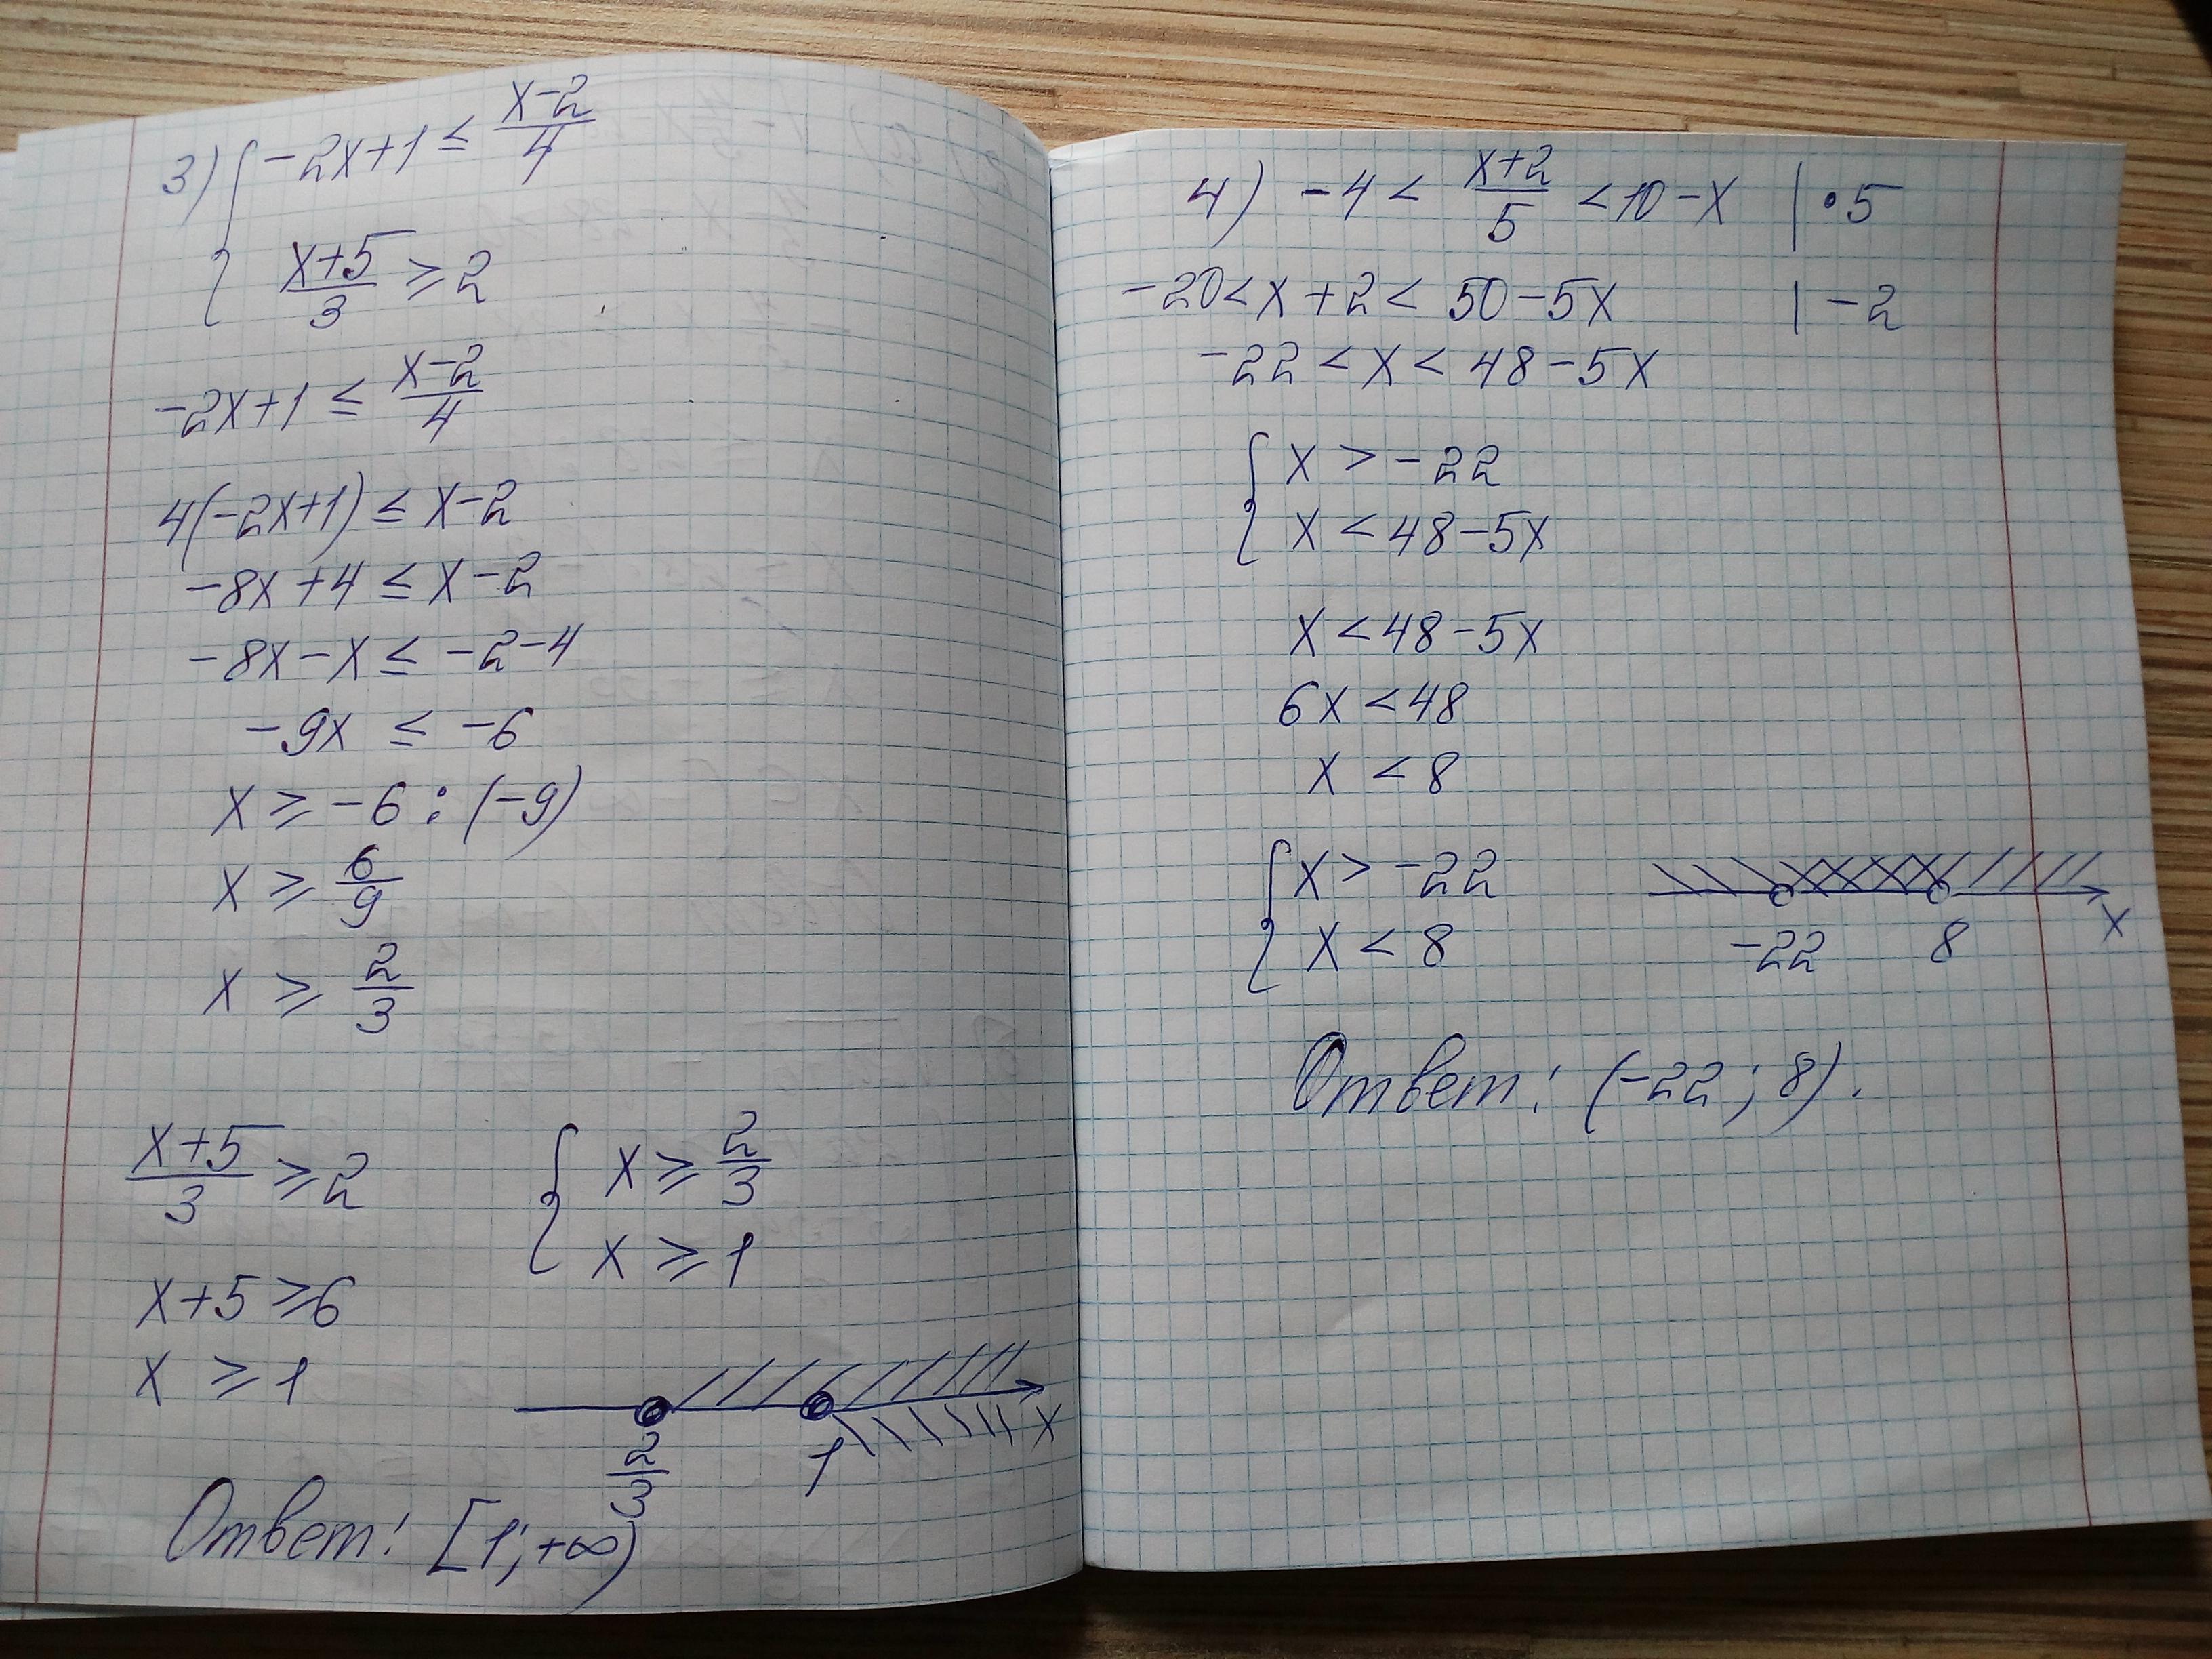 3) { -2x+1 ≤ (x-2)/4
(x+5)/3 ≥ 2
-2x+1 ≤ (x-2)/4
4(-2x+1) ≤ x-2
-8x+4 ≤ x-2
-8x-x ≤ -2-4
-9x ≤ -6
x ≥ -6 : (-9)
x ≥ 6/9
x ≥ 2/3
(x+5)/3 ≥ 2
x+5 ≥ 6
x ≥ 1
{ x ≥ 2/3
x ≥ 1
2/3 1 x
Ответ: [1; +∞)
4) -4 < (x+2)/5 < 10-x | • 5
-20 < x+2 < 50-5x | -2
-22 < x < 48-5x
{ x > -22
x < 48-5x
x < 48-5x
6x < 48
x < 8
{ x > -22
x < 8
-22 8 x
Ответ: (-22; 8).